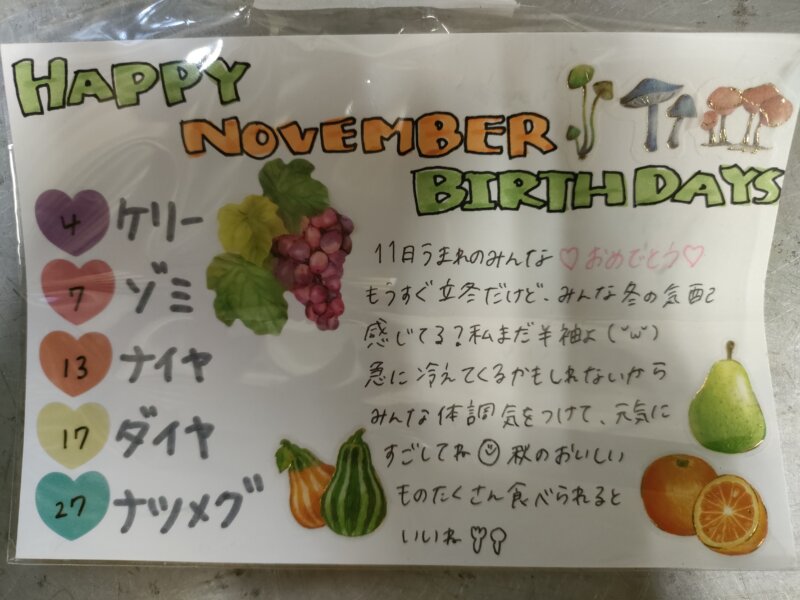 HAPPY
NOVEMBER
BIRTHDAYS
4 ケリー
7 ゾミ
13 ナイヤ
17 ダイヤ
27 ナツメグ
11月うまれのみんな♡おめでとう♡
もうすぐ立冬だけど、みんな冬の気配を
感じてる?私まだ半袖よ(˘ω˘)
急に冷えてくるかもしれないから
みんな体調気をつけて、元気に
すごしてね☺秋のおいしい
ものたくさん食べられると
いいね